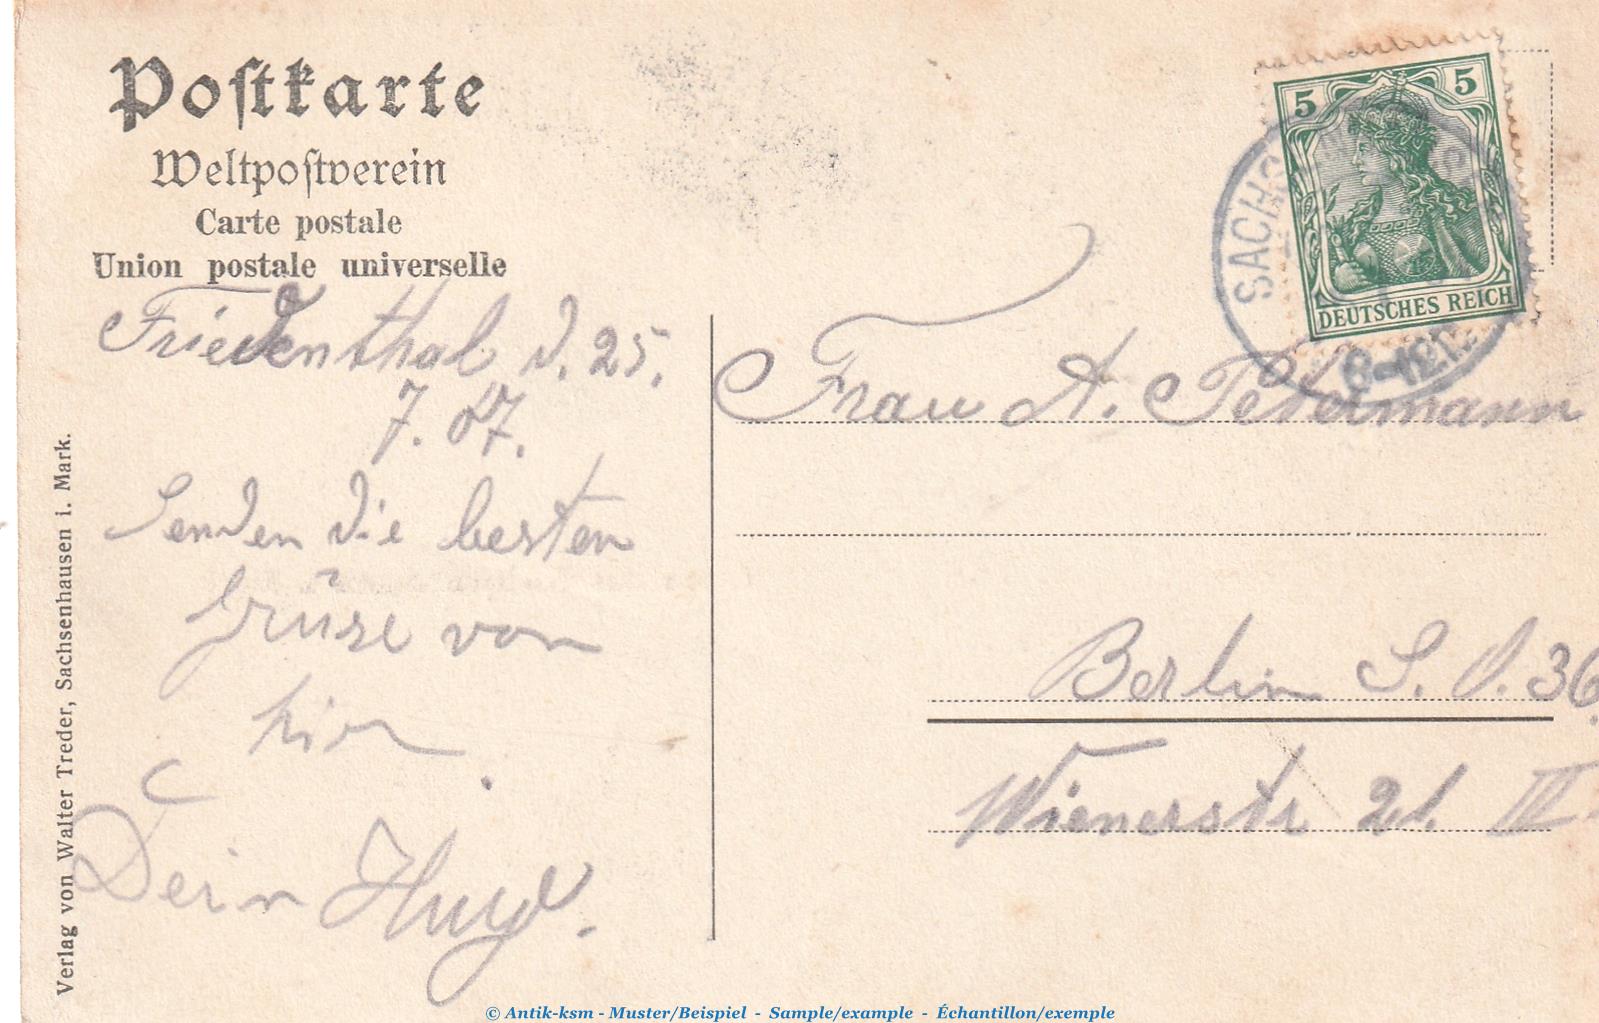 Postkarte
Weltpostverein
Carte postale
Union postale universelle
Friedenthal d. 25.
7. 07.
Senden die besten
Grüse von
hier
.
Dein Hugo.
Verlag von Walter Treder, Sachsenhausen i. Mark.
5 5
DEUTSCHES REICH
SACHS
8-9
Frau A. Petermann
Berlin S. O. 36.
Wienerstr 21. III.
© Antik-ksm - Muster/Beispiel - Sample/example - Échantillon/exemple